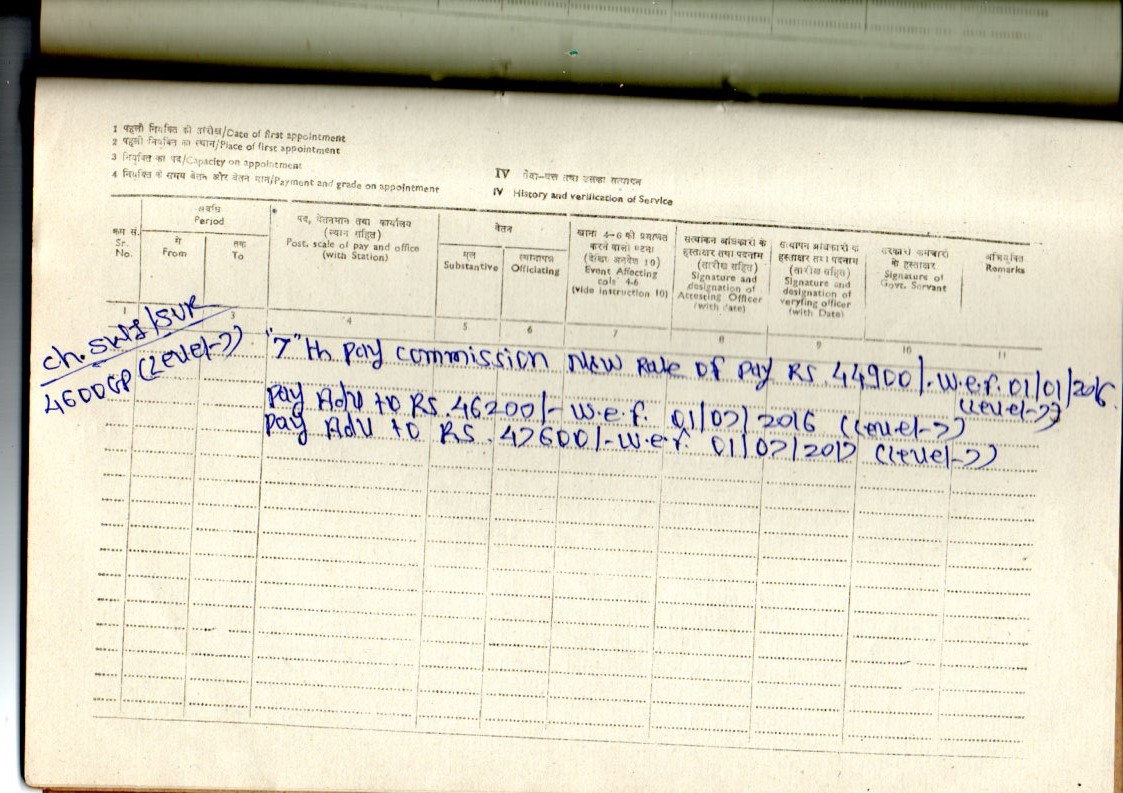 1 पहली नियुक्ति की तारीख/Date of first appointment
2 पहली नियुक्ति का स्थान/Place of first appointment
3 नियुक्ति का पद/Capacity on appointment
4 नियुक्ति के समय वेतन और वेतन मान/Payment and grade on appointment
IV सेवा-वृत्त तथा उसका सत्यापन
IV History and verification of Service
क्रम सं.
Sr.
No.
अवधि
Period
से
From
तक
To
पद, वेतनमान तथा कार्यालय
(स्थान सहित)
Post, scale of pay and office
(with Station)
वेतन
मूल
Substantive
स्थानापन्न
Officiating
खाना 4-6 को प्रभावित
करने वाली घटना
(देखिए अनदेश 10)
Event Affecting
cols 4-6
(vide instruction 10)
सत्यांकन अधिकारी के
हस्ताक्षर तथा पदनाम
(तारीख सहित)
Signature and
designation of
Attesting Officer
(with date)
सत्यापन अधिकारी के
हस्ताक्षर तथा पदनाम
(तारीख सहित)
Signature and
designation of
veryfing officer
(with Date)
सरकारी कर्मचारी
के हस्ताक्षर
Signature of
Govt. Servant
अभियुक्ति
Remarks
1 3 4 5 6 7 8 9 10 11
Ch. SWI/SUR
4600GP (Level-7)
"7"th Pay Commission New Rate Of Pay RS. 44900/-W.e.f. 01/01/2016
(Level-7)
Pay Adv to RS. 46200/- W.e.f. 01/07/2016 (Level-7)
Pay Adv to RS. 47600/-W.e.f. 01/07/2017 (Level-7)